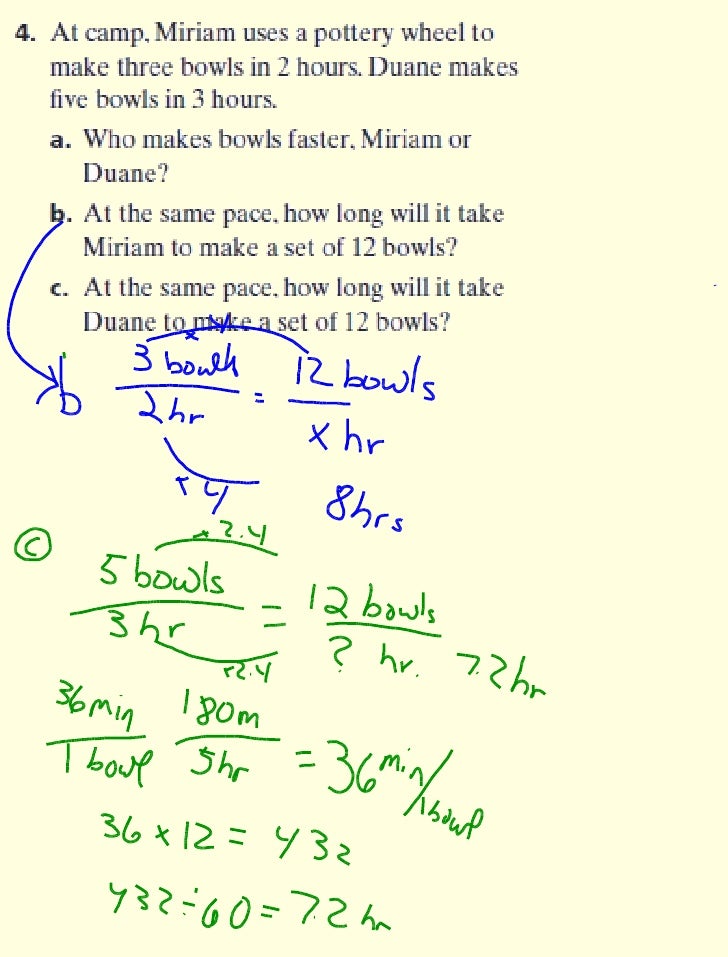 4. At camp, Miriam uses a pottery wheel to
make three bowls in 2 hours. Duane makes
five bowls in 3 hours.
a. Who makes bowls faster, Miriam or
Duane?
b. At the same pace, how long will it take
Miriam to make a set of 12 bowls?
c. At the same pace, how long will it take
Duane to make a set of 12 bowls?
b 3 = 12 bowls
2 hr x hr
×4 8hrs
c ×2.4
5 bowls = 12 bowls
3 hr ? hr. 7.2 hr
×2.4
36 min 180m
1 bowl 5hr = 36 min/1bowl
36 × 12 = 432
432 ÷ 60 = 7.2 hr